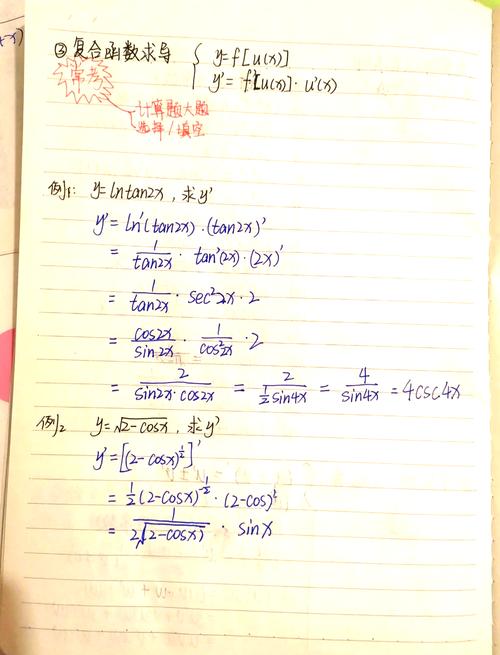 ③ 复合函数求导 { y=f[u(x)]
y'=f'[u(x)]·u'(x)
常考
计算题大题
选择/填空
例1: y=lntan2x, 求y'
y'=ln'(tan2x)·(tan2x)'
= 1/tan2x · tan'(2x)·(2x)'
= 1/tan2x · sec²2x·2
= cos2x/sin2x · 1/cos²2x ·2
= 2/sin2x·cos2x = 2/½sin4x = 4/sin4x =4csc4x
例2 y=√2-cosx, 求y'
y'=[(2-cosx)^½]'
= ½(2-cosx)^-½·(2-cos)'
= 1/2√(2-cosx) · sinx